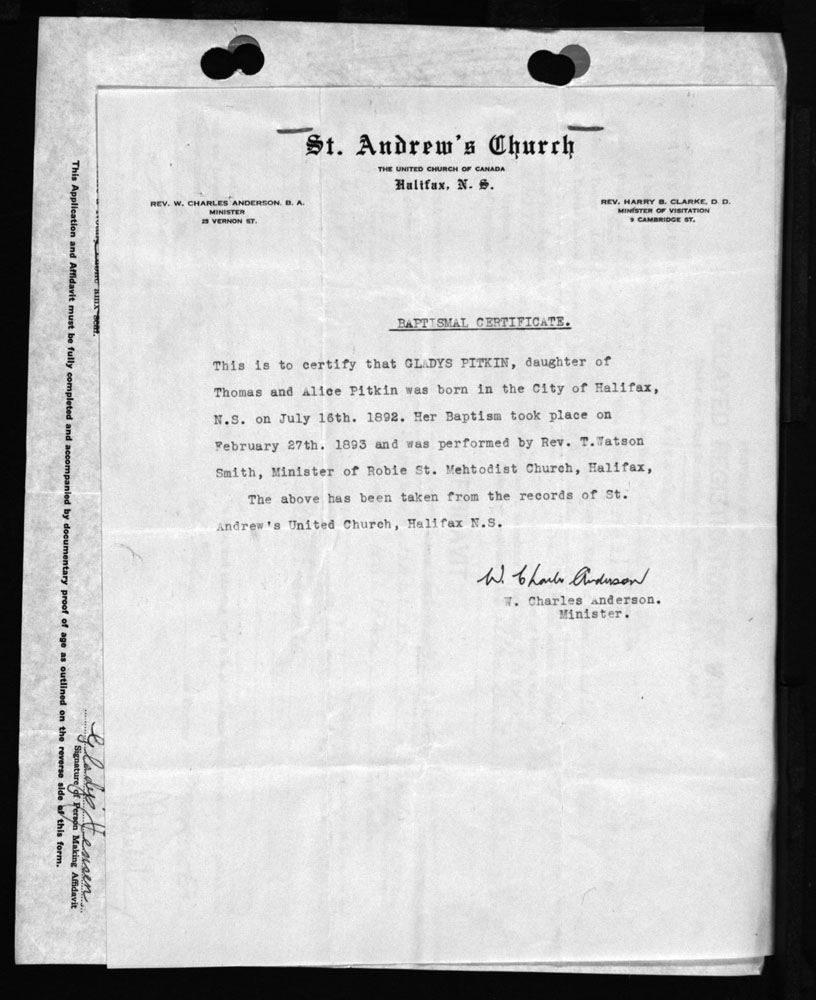 St. Andrew's Church
THE UNITED CHURCH OF CANADA
Halifax, N. S.
REV. W. CHARLES ANDERSON. B. A.
MINISTER
25 VERNON ST.
REV. HARRY B. CLARKE, D. D.
MINISTER OF VISITATION
9 CAMBRIDGE ST.
BAPTISMAL CERTIFICATE.
This is to certify that GLADYS PITKIN, daughter of
Thomas and Alice Pitkin was born in the City of Halifax,
N.S. on July 16th. 1892. Her Baptism took place on
February 27th. 1893 and was performed by Rev. T.Watson
Smith, Minister of Robie St. Mehtodist Church, Halifax,
The above has been taken from the records of St.
Andrew's United Church, Halifax N.S.
W. Charles Anderson
W. Charles Anderson.
Minister.
seal.
Gladys Jensen
Signature of Person Making Affidavit
This Application and Affidavit must be fully completed and accompanied by documentary proof of age as outlined on the reverse side of this form.